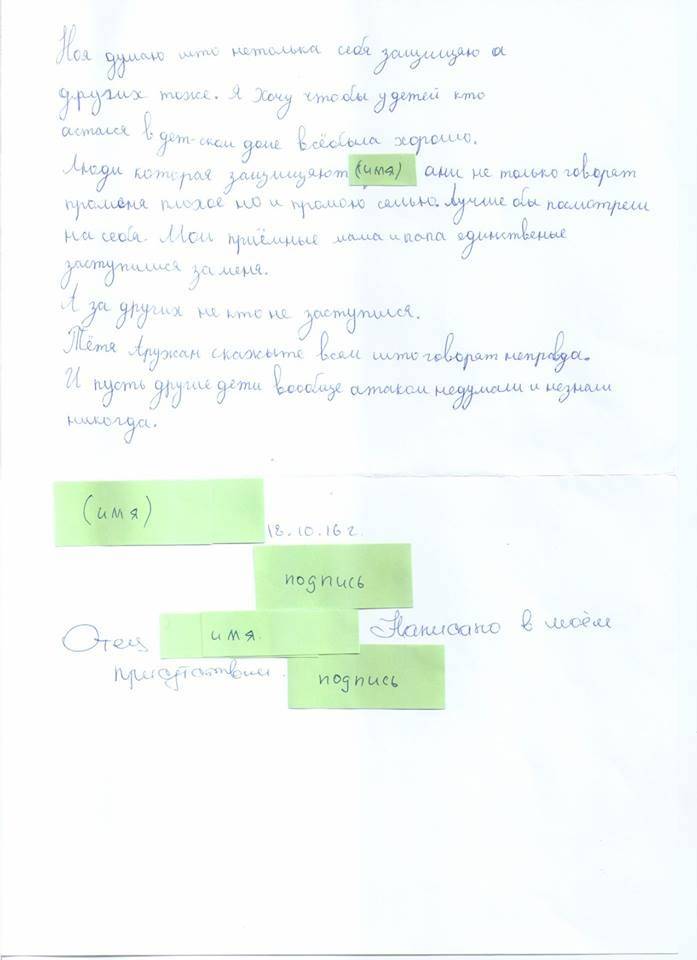 Ноя думаю што нетолька себя защищяю а
других тоже. Я хочу чтобы удетей кто
астался в дет-ском доме всёбыла хорошо.
Люди которая защищяют (имя) ани не только говорят
промомня плохое но и промою семью. Лучше бы посмотрели
на себя. Мои приёмные мама и папа единственые
заступилися за меня.
А за других не кто не заступился.
Тётя Аружан скажыте всем што говорят неправда.
И пусть другие дети вообще атаком недумали и незнали
никогда.
(имя)
18.10.16 г.
подпись
Отец имя. Написано в моём
присутствии.
подпись